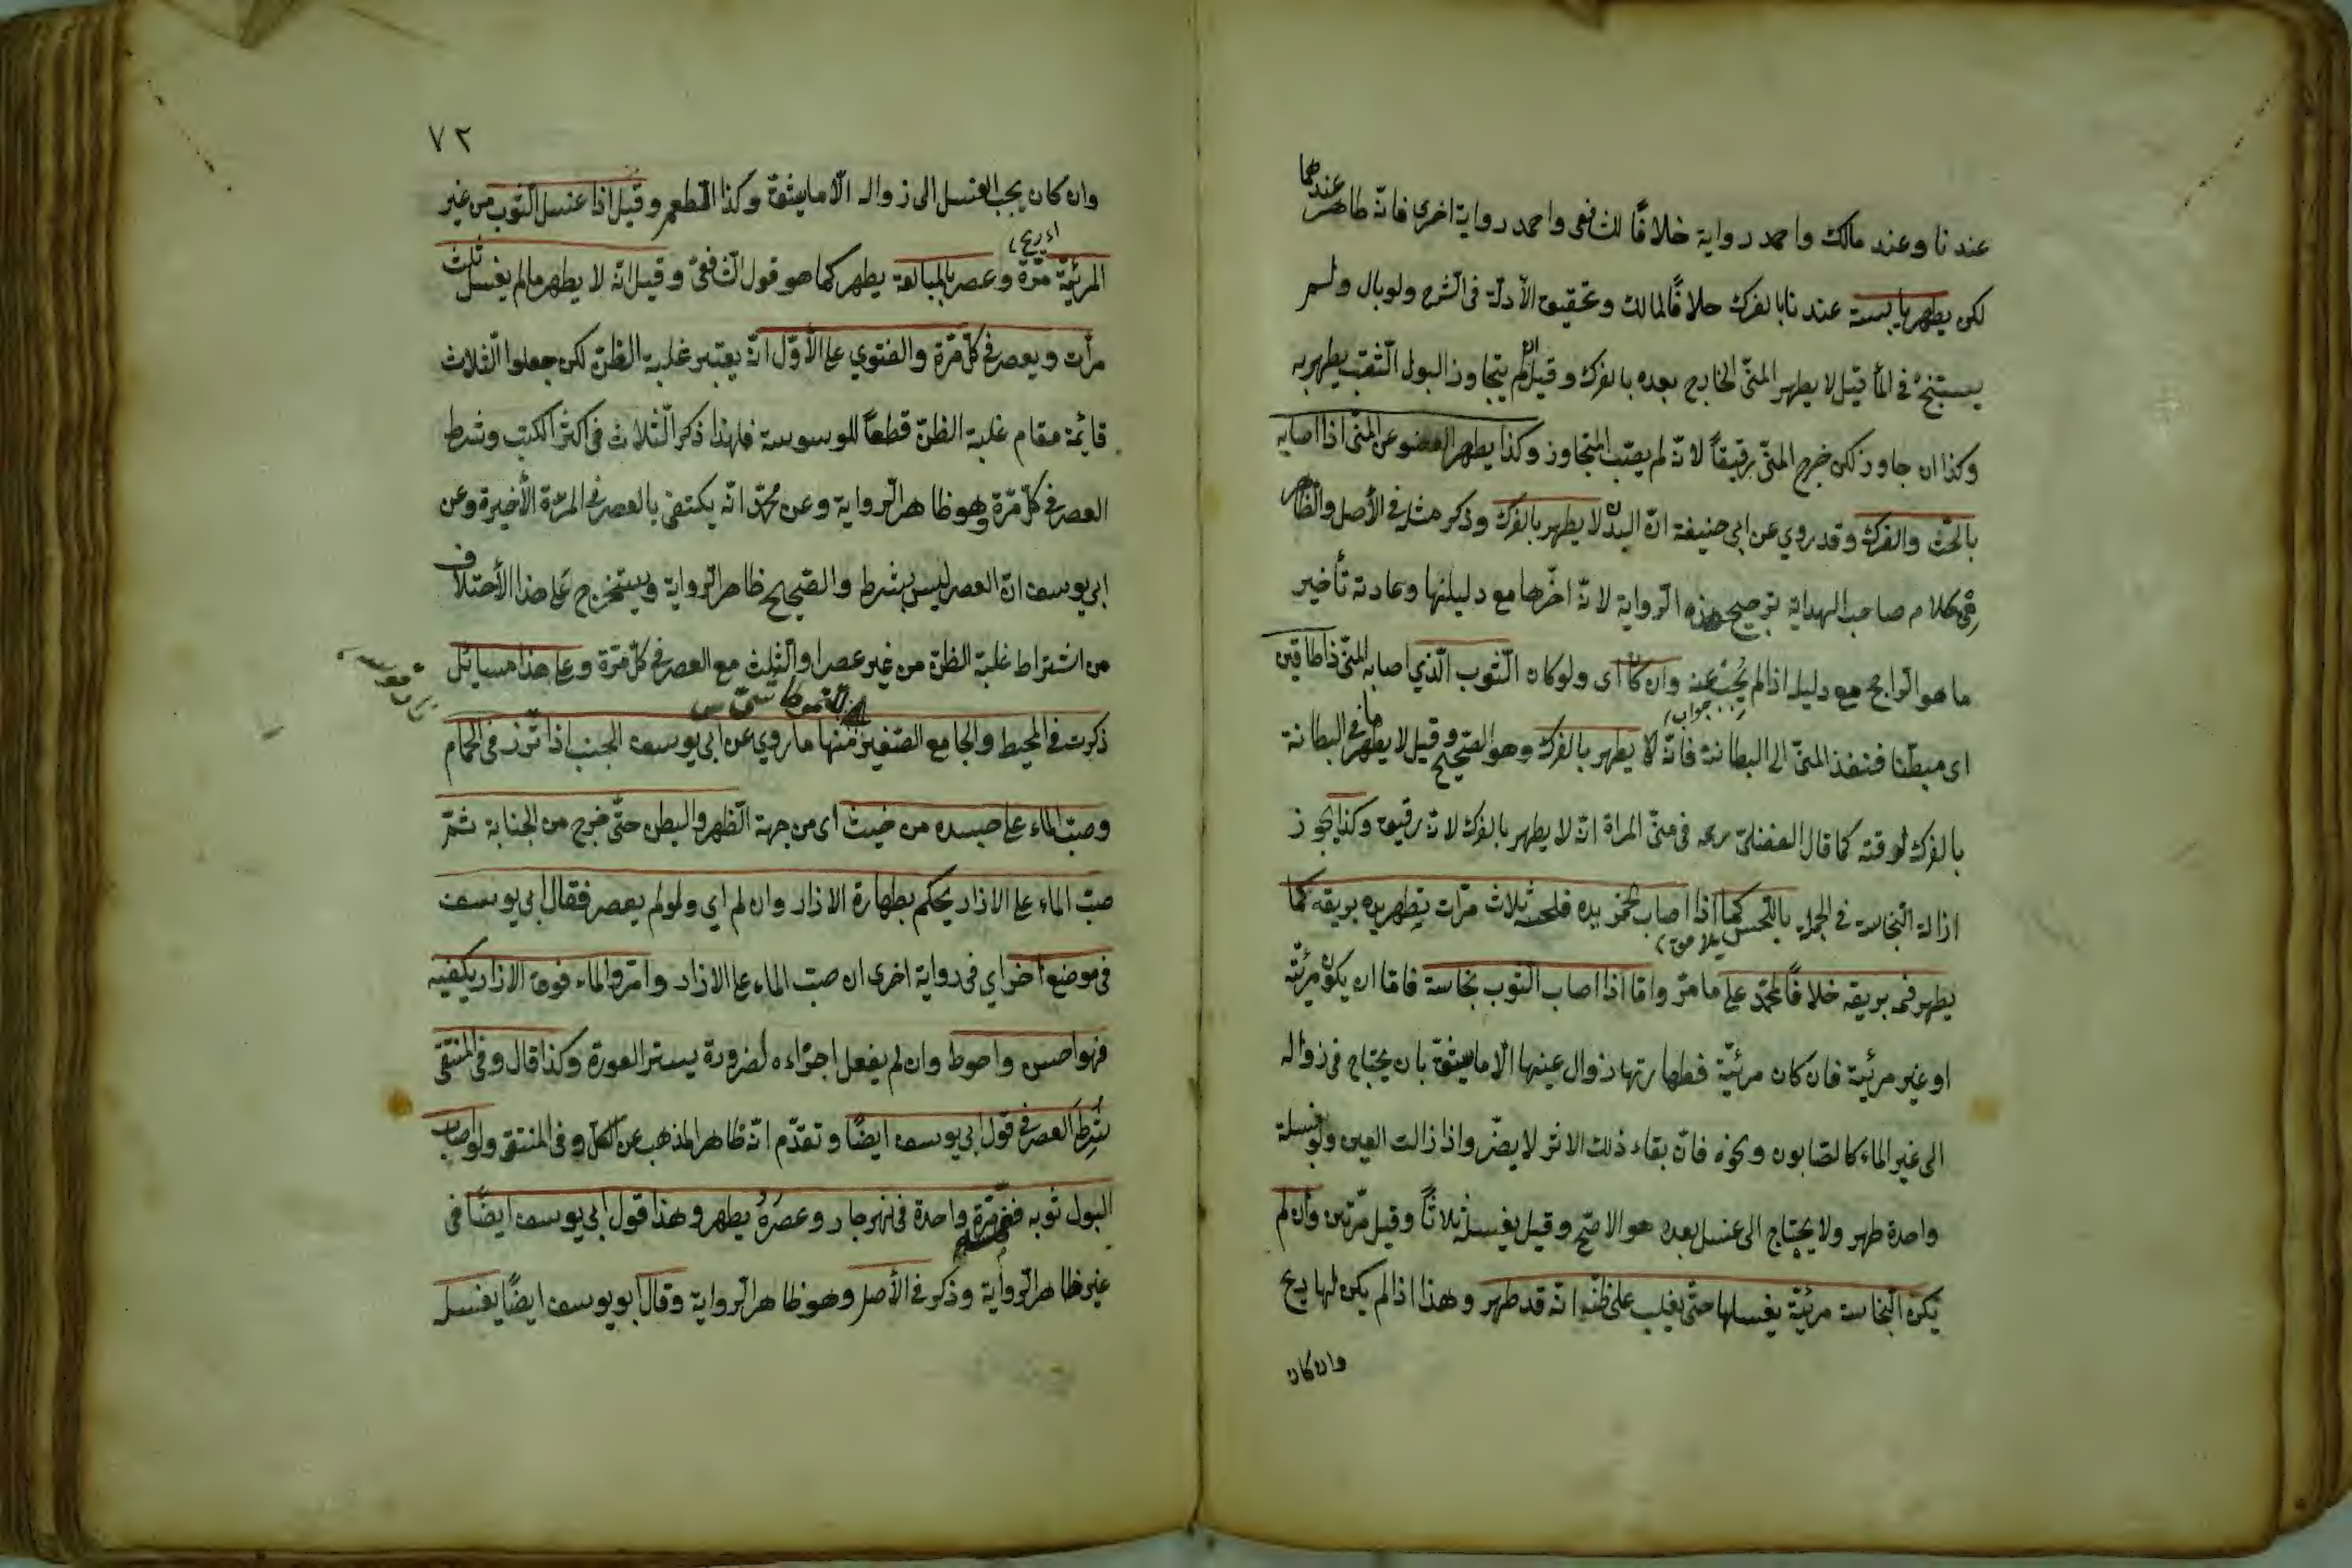 عندنا وعند مالك واحمد رواية خلافًا للشافعى واحمد رواية اخرى فانّه طاهر عندهما
لكن يطهر يابسه عندنا بالفرك خلافًا لمالك وتحقيق الأدلّة فى الشرح ولو بال ولم
يستنج فى الماء قيل لا يطهر المنىّ الخارج بعده بالفرك وقيل ان لم يتجاوز البول الثقب يطهر به
وكذا ان جاوز لكن خرج المنىّ رقيقاً لانّه لم يصب المتجاوز وكذا يطهر العضو عن المنىّ اذا اصابه
بالحتّ والفرك وقد روي عن ابى حنيفة انّ البدن لا يطهر بالفرك وذكر مثله فى الأصل والظاهر
من كلام صاحب الهداية ترجيح هذه الرواية لانّه اخّرها مع دليلها وعادته تأخير
ما هو الراجح مع دليله اذا لم يُجب عنه وان كان اى ولو كان الثوب الّذي اصابه المنىّ ذا طاقين
جواب
اى مبطّنا فنفذ المنىّ الى البطانة فانّه يطهر بالفرك وهو الصّحيح وقيل لا يطهر ما فى البطانة
بالفرك لرقته كما قال الفضلىّ رحمه فى منىّ المرأة انّه لا يطهر بالفرك لانّه رقيق وكذا يجوز
ازالة النّجاسة فى الجملة باللحس كما اذا اصاب الخمر يده فلحسه ثلاث مرّات تطهر يده بريقه كما
يطهر فمه بريقه خلافًا لمحمّد على ما مرّ وامّا اذا اصاب الثوب نجاسة فامّا ان يكون مرئيّة
او غير مرئيّة فان كان مرئيّة فطهارتها زوال عينها الّا ما يشقّ بان يحتاج فى زواله
الى غير الماء كالصّابون ونحوه فانّ بقاء ذلك الاثر لا يضرّ واذا زالت العين ولو بغسلة
واحدة طهر ولا يحتاج الى غسل بعده هو الاصّح وقيل يغسل ثلاثًا وقيل مرّتين وان لم
يكن النّجاسة مرئيّة يغسلها حتّى يغلب على ظنّه انّه قد طهر وهذا اذا لم يكن لها ريح
وان كان
٧٢
وان كان يجب الغسل الى زواله الّا ما يشقّ وكذا الطعم وقيل اذا غسل الثوب من غير
المرئيّة مرّة وعصر بالمبالغة يطهر كما هو قول الشافعىّ وقيل انّه لا يطهر ما لم يغسل ثلث
مرّات ويعصر فى كلّ مرّة والفتوي على الأوّل انّه يعتبر غلبة الظنّ لكن جعلوا الثلاث
قائمة مقام غلبة الظنّ قطعاً للوسوسة فلهذا ذكر الثلاث فى اكثر الكتب وشرط
العصر فى كلّ مرّة وهو ظاهر الرواية وعن محمّد انّه يكتفى بالعصر فى المرّة الأخيرة وعن
ابى يوسف انّ العصر ليس بشرط والصّحيح ظاهر الرواية ويستخرج على هذا الأختلاف
من اشتراط غلبة الظنّ من غير عصر او الثلث مع العصر فى كلّ مرّة وعلى هذا مسائل
ذكرت فى المحيط والجامع الصّغير منها ما روي عن ابى يوسف الجنب اذا اتّزر فى الحمّام
وصبّ الماء على جسده من حيث اى من جهة الظهر والبطن حتّى خرج من الجنابة ثمّ
صبّ الماء على الازار يحكم بطهارة الازار وان لم اى ولو لم يعصر فقال ابى يوسف
فى موضع آخر اي فى رواية اخرى ان صبّ الماء على الازار وامرّ الماء فوق الازار يكفيه
فهو احسن واحوط وان لم يفعل اجزاءه لضرورة يستر العورة وكذا قال وفى المنتقى
شُرِط العصر فى قول ابى يوسف ايضًا وتقدّم انّه ظاهر المذهب عن الكلّ وفى المنتقى ولو اصاب
البول ثوبه مرّة واحدة فى نهر جار وعصَرَهُ يطهر وهذا قول ابى يوسف ايضًا فى
غير ظاهر الرّواية وذكر فى الأصل وهو ظاهر الرّواية وقال ابو يوسف ايضًا يغسل